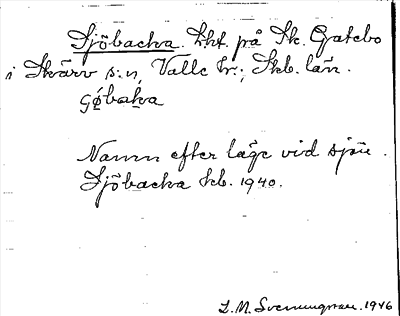 Sjöbacka. Lht. på St. Gatebo
i Skärv s:n, Valle hr.; Skb. län.
Namn efter läge vid sjön.
Sjöbacka skb. 1940.
L.M. Svenungsson. 1946